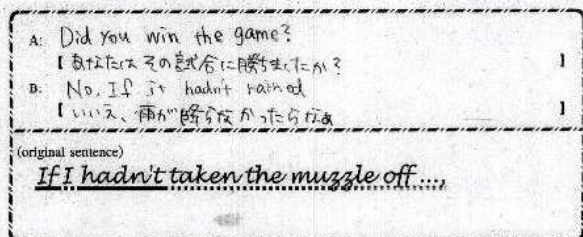 A: Did you win the game?
【 あなたはその試合に勝ちましたか? 】
B: No, If it hadn't rained
【 いいえ、雨が降らなかったらなぁ 】
(original sentence)
If I hadn't taken the muzzle off ...,